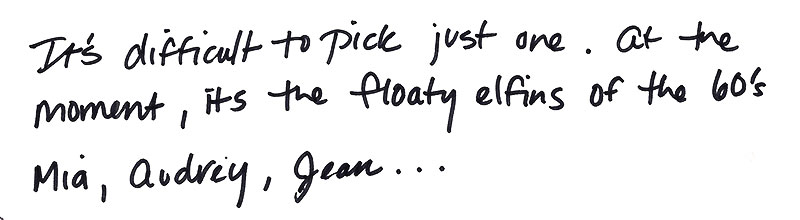 It's difficult to pick just one. at the
moment, its the floaty elfins of the 60's
Mia, Audrey, Jean...